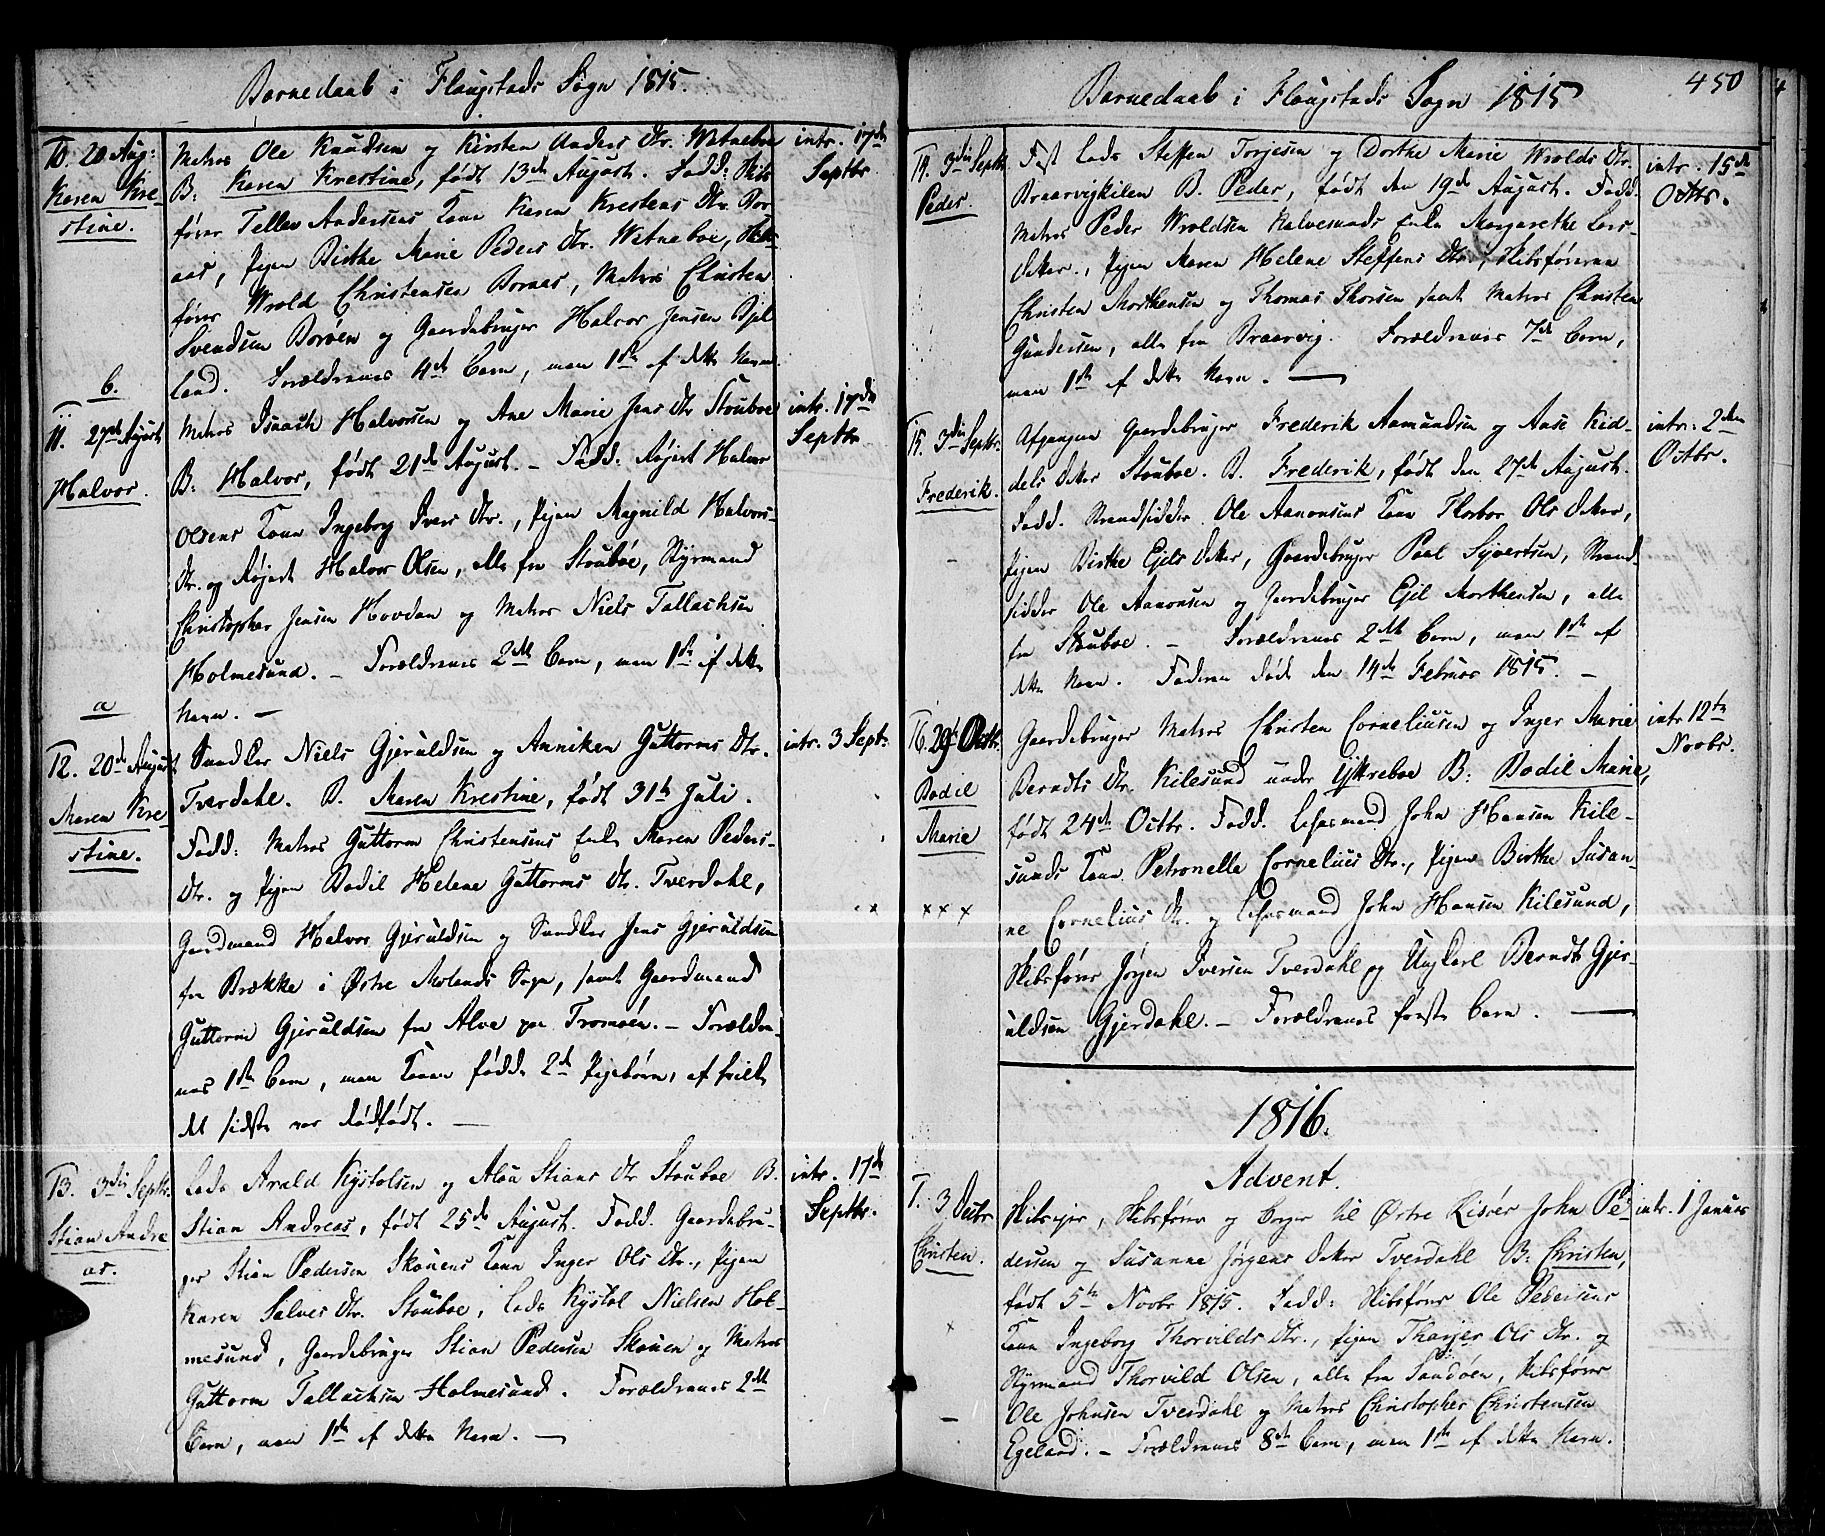 Barnedaab i Flaugstads Sogn 1815.
10. 20 Aug:
Karen Kre-
stine.
Matros Ole Knudsen og Kirsten Anders Dtr. Watneboe
B: Karen Krestine, født 13de August. Fadd: Skibs-
fører Tellev Andersens Kone Karen Krestens Dtr. Bor-
aas, Pigen Birthe Marie Peders Dtr. Watneboe, Skibs-
fører Wrold Christensen Boraas, Matros Christen
Svendsen Borøen og Gaardebruger Halvor Jensen Bjel-
land. Forældrenes 4de Barn, men 1ste af dette Navn.
intr. 17de
Septbr
b.
11. 27de August
Halvor.
Matros Isaach Halvorsen og Ane Marie Jens Dtr Stouboe
B: Halvor, født 21de August. - Fadd. Halvor
Olsens Kone Ingeborg Ivers Dtr., Pigen Magnild Halvors-
Dtr. og Halvor Olsen, alle fra Stouboe, Styrmand
Christopher Jensen Hovdan og Matros Niels Tallachsen
Holmesund. - Forældrenes 2det Barn, men 1ste af dette
Navn. -
intr. 17de
Septbr
a
12. 20de August
Maren Kre-
stine.
Niels Gjeruldsen og Anniken Guttorms Dtr.
Tverdahl. B. Maren Krestine, født 31te Juli.
Fadd: Matros Guttorm Christensens Enke Maren Peders-
Dtr. og Pigen Bodil Helene Guttorms Dtr. Tverdahl,
Gaardmand Halvor Gjeruldsen og Jens Gjeruldsen
fra Brække i Østre Molands Sogn, samt Gaardmand
Guttorm Gjeruldsen fra Alve paa Tromøen. - Forældre-
nes 1ste Barn, men Konen fødde 2de Pigebørn, af hvilke
det sidste var dødfødt. -
intr. 3 Septr.
13. 3die Septbr.
Stian Andre
as.
Lods Arald Kystolsen og Stians Dtr Stouboe B.
Stian Andreas, født 25de August. Fadd. Gaardebru-
ger Stian Pedersen Skouens Kone Inger Ols Dtr., Pigen
Karen Salves Dtr. Stouboe, Lods Kystol Nielsen Hol-
mesund, Gaardebruger Stian Pedersen Skouen og Matros
Guttorm Tallachsen Holmesund. Forældrenes 2det
Barn, men 1ste af dette Navn. -
intr. 17de
Septbr.
Barnedaab i Flaugstads Sogn 1815
450
14. 3die Septbr.
Peder.
Fast Lods Steffen Torjesen og Dorthe Marie Wrolds Dtr.
Braarvigkilen B. Peder, født den 19de August. Fadd.
Matros Peder Wroldsen Kalvesunds Enke Margarethe Lars-
Datter, Pigen Maren Helene Steffens Dtr., Skibsførerne
Christen Morthensen og Thomas Thorsen samt Matros Christen
Gundersen, alle fra Braarvig. Forældrenes 7de Barn,
men 1ste af dette Navn. -
intr. 15de
Octbr.
15. 3die Septbr.
Frederik.
Afgangne Gaardebruger Frederik Aamundsen og Aase Kid-
dels Datter Stouboe. B. Frederik, født den 27de August.
Fadd. Strandsidder Ole Aanonsens Kone Thorbor Ols Datter,
Pigen Birthe Ejels Datter, Gaardebruger Poal Syvertsen, Strand-
sidder Ole Aanonsen og Gaardebruger Ejel Morthensen, alle
fra Stouboe. - Forældrenes 2det Barn, men 1ste af
dette Navn. Faderen døde den 14de Februar 1815. -
intr. 2den
Octbr.
16. 29de Octbr.
Bodil
Marie
xxx
Gaardebruger Matros Christen Corneliusen og Inger Marie
Berndts Dtr. Kilesund under Ytreboe B: Bodil Marie,
født 24de Octbr. Fadd. John Hansen Kile-
sunds Kone Petronelle Cornelius Dtr., Pigen Birthe Susan-
ne Cornelius Dtr. og John Hansen Kilesund,
Skibsfører Jørgen Iversen Tverdahl og Ungkarl Berndt Gjer-
uldsen Gjerdahl. - Forældrenes første Barn. -
intr 12te
Novbr.
1816.
Advent.
1. 3 Decbr
Christen.
Skibsejer, Skibsfører og Borger til Østre Risøer John Pe-
dersen og Susanne Jørgens Datter Tverdahl B: Christen,
født 5te Novbr 1815. Fadd: Skibsfører Ole Pedersens
Kone Ingeborg Thorvilds Dtr., Pigen Tharjer Ols Dtr. og
Styrmand Thorvild Olsen, alle fra Sandøen, Skibsfører
Ole Johnsen Tverdahl og Matros Christopher Christensen
Egeland. - Forældrenes 8de Barn, men 1ste af dette Navn.
intr. 1 Januar